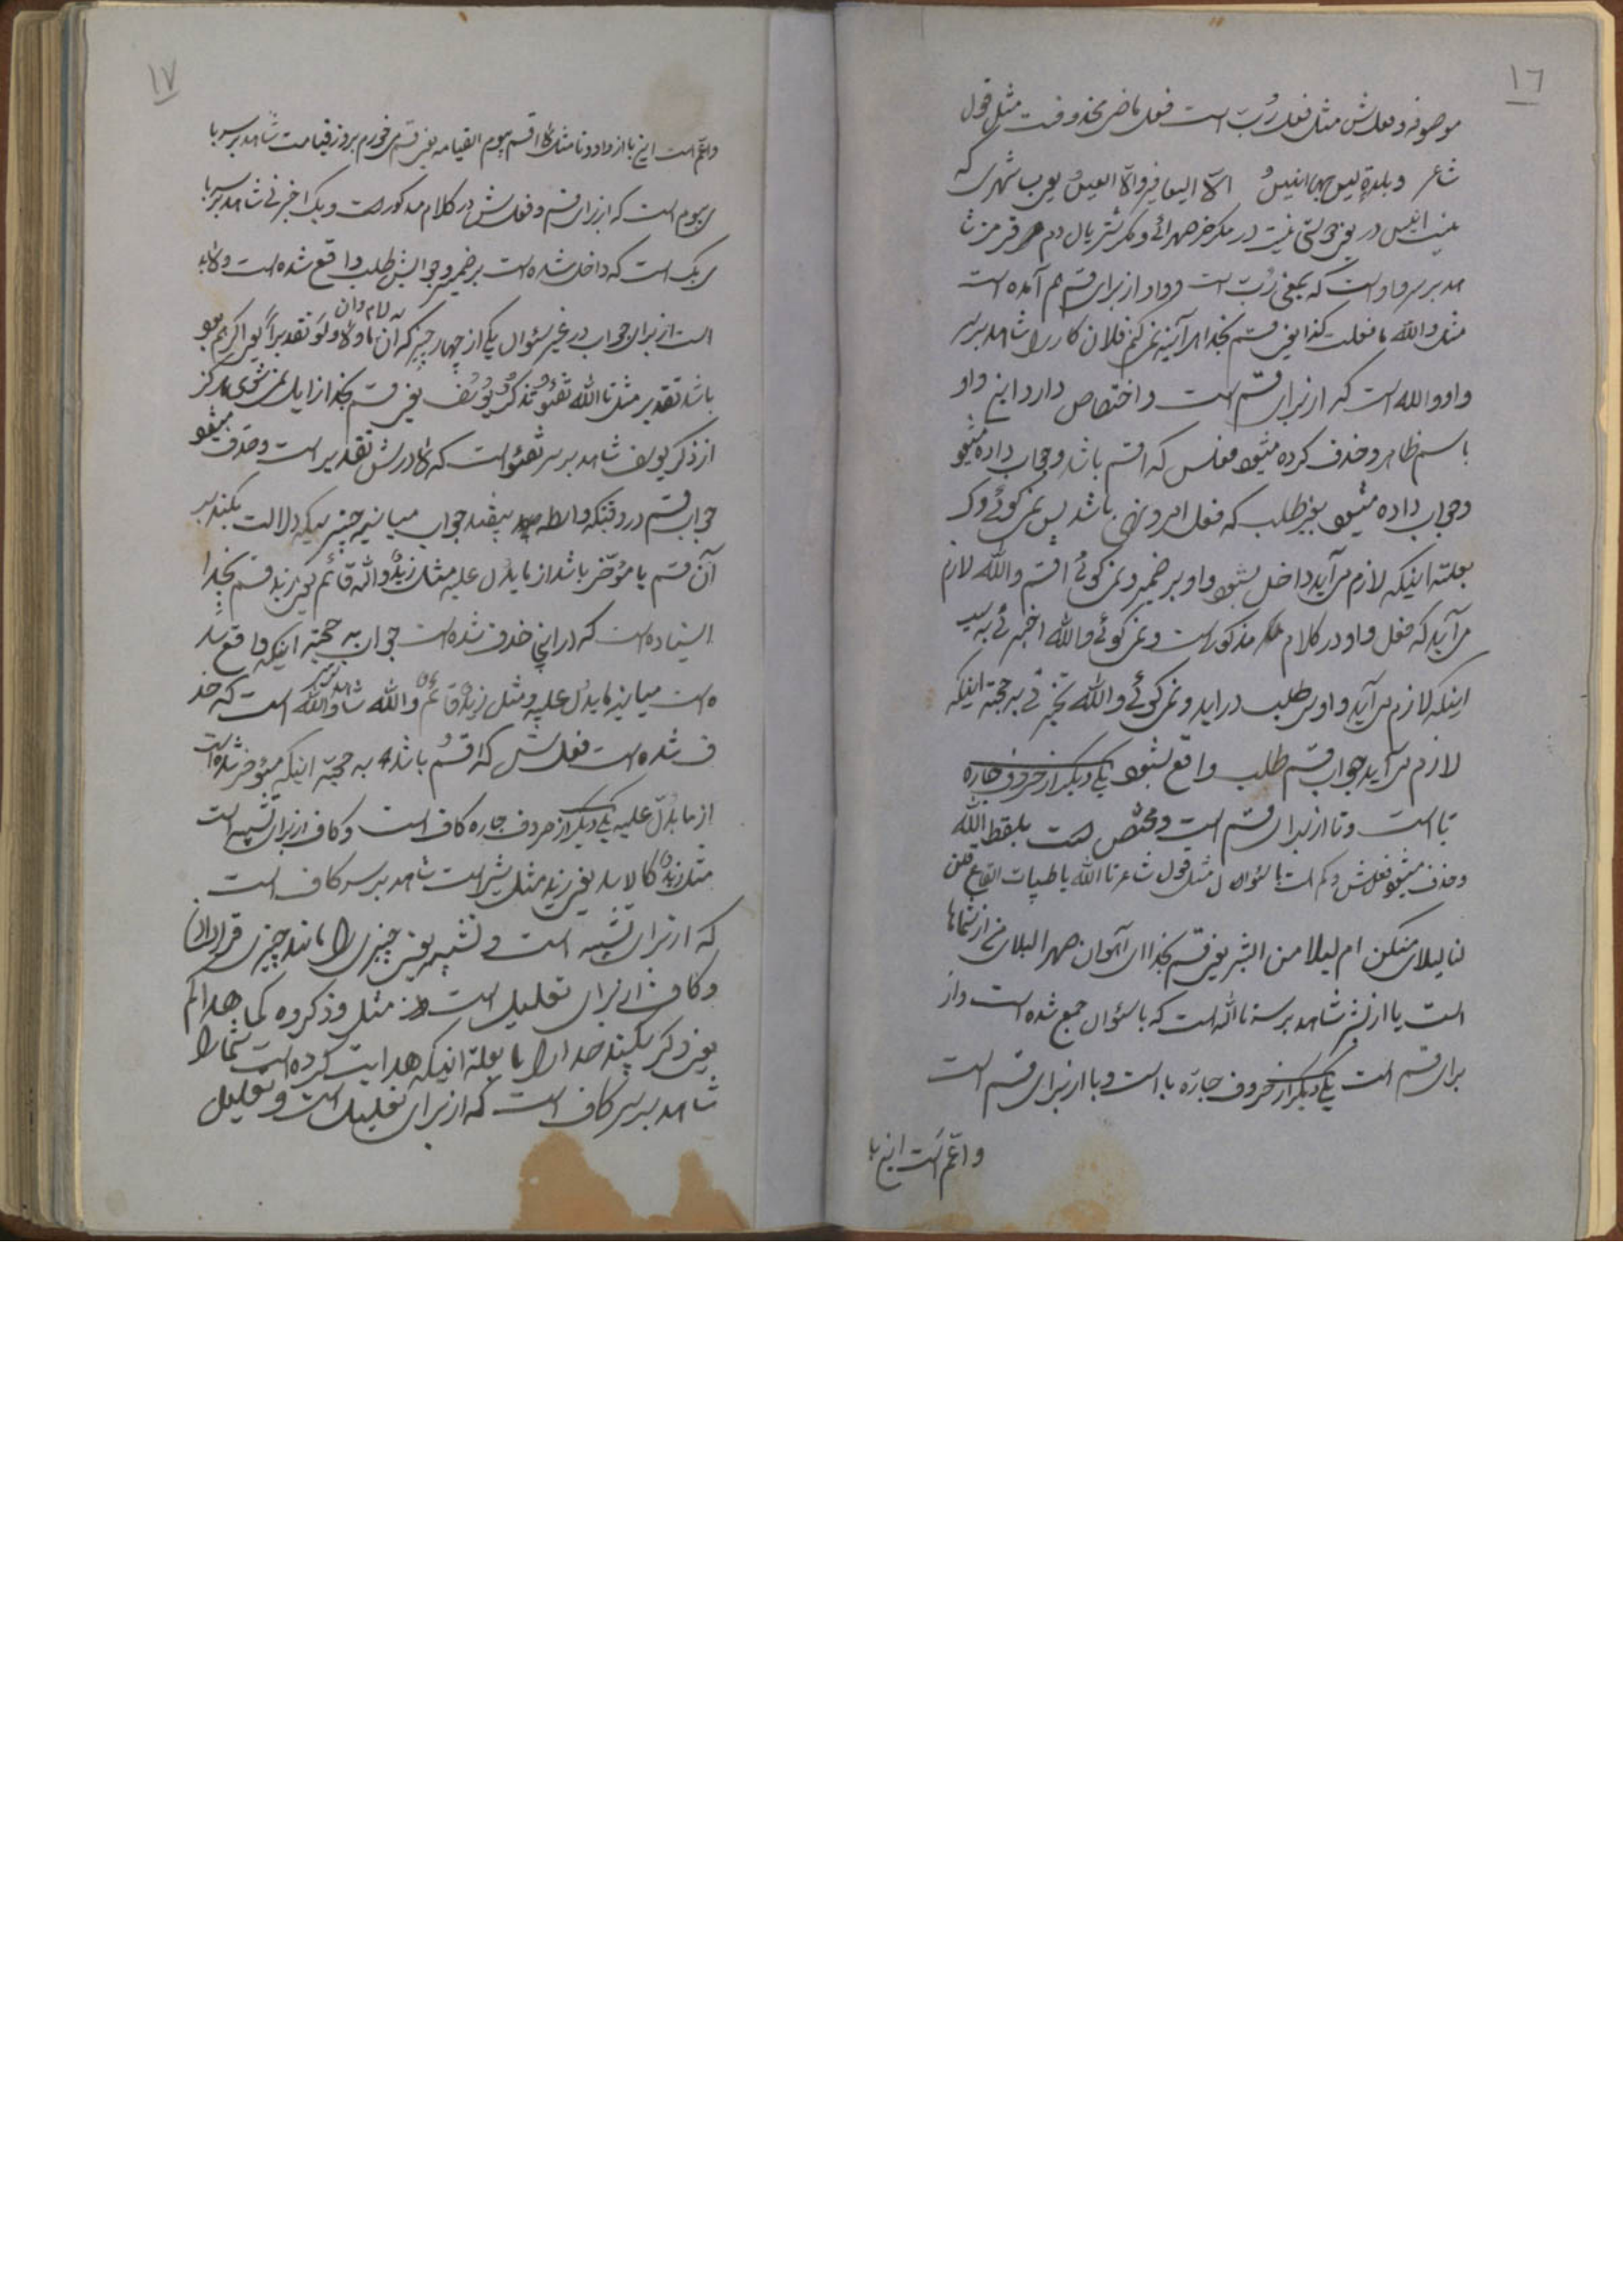 ١٦
موصوفه و فعلش مثل فعل رُبّ است فعل ماضی محذوفت مثل قول
شاعر و بلدةٍ لیس بها انیسُ الاّ الیعافیر و الاّ العیسُ یعنی بسا شهری که
نیست انیس در
مد بر سر واو است که بمعنی رُبّ است و واو از برای قسم هم آمده است
مثل و الله ما فعلت کذا یعنی قسم بخدا هر آینه نمی کنم فلان کار را شاهد بر سر
واو و الله است که از برای قسم است و اختصاص دارد این واو
باسم ظاهر و حذف کرده میشود فعلش که اقسم باشد و جواب داده میشود
و جواب داده میشود بغیر طلب که فعل امر و نهی باشد پس نمی گوئی وک
بعلته اینکه لازم می آید داخل بشود واو بر ضمیر و نمی گوئی اقسم و الله لازم
می آید که فعل واو در کلام مذکور است و نمی گوئی و الله اخبرنی به سبب
اینکه لازم می آید واو سر طلب در اید و نمی گوئی و الله تخبرنی به حجته اینکه
لازم می آید جواب قسم طلب واقع بشود یکی دیگر از حروف جاره
تا است و تا از برای قسم است و مختص است بلفظ الله
و حذف میشود فعلش و کم است با سئوال مثل قول شاعر تا الله یا ظبیات القاع قلن
لنا لیلای منکن ام لیلا من البشر یعنی قسم بخدا ای آهوان صحرا لیلای من از شماها
است یا از بشر شاهد بر سر تا الله است که با سئوال جمع شده است و از
برای قسم است یکی دیگر از حروف جارّه با است و با از برای قسم است
و اعمّ است این با
١٧
و اعمّ است این با از واو و تا مثل لا اقسم بیوم القیامه یعنی قسم می خورم بروز قیامت شاهد بر سر با
ی بیوم است که از برای قسم و فعلش در کلام مذکور است و بک اخبرنی شاهد بر سر با
ی بک است که داخل شده است بر ضمیر و جوابش طلب واقع شده است و لابد
است از برای جواب در غیر سئوال یکی از چهار چیز که ان ما و لا و لو تقدیراً
لام و ان
باشد تقدیر مثل تا الله تفتئو تذکرُ یوسُف یعنی قسم بخدا زایل نمی شوی هرگز
از ذکر یوسف شاهد بر سر تفتئو است که لا درش تقدیر است و حذف میشود
جواب قسم در وقتیکه واسطه بیفتد جواب میانه چیزیکه دلالت بکند بر
آن قسم یا مؤخّر باشد از ما یدُل علیه مثل زیدٌ و الله قائم یعنی زید قسم بخدا
ایستاده است که در اینجا حذف شده است جواب به حجته اینکه واقع شد
ه است میانه ما یدُل علیه و مثل زیدٌ قائمٌ و الله شاهد بر سر و الله است که حذ
ف شده است فعلش که اقسُم باشد به حجته اینکه مؤخر شده است
از ما یدُلّ علیه یکی دیگر از حروف جاره کاف است و کاف از برای تشبیه است
مثل زیدٌ کالاسد یعنی زید مثل شیر است شاهد بر سر کاف است
که از برای تشبیه است و تشبیه یعنی چیزی را مانند چیزی قرار دادن
و کاف از برای تعلیل است مثل وذکروه کما هداکم
یعنی ذکر بکنید خدا را بعلته اینکه هدایت کرده است شما را
شاهد بر سر کاف است که از برای تعلیل است و تعلیل